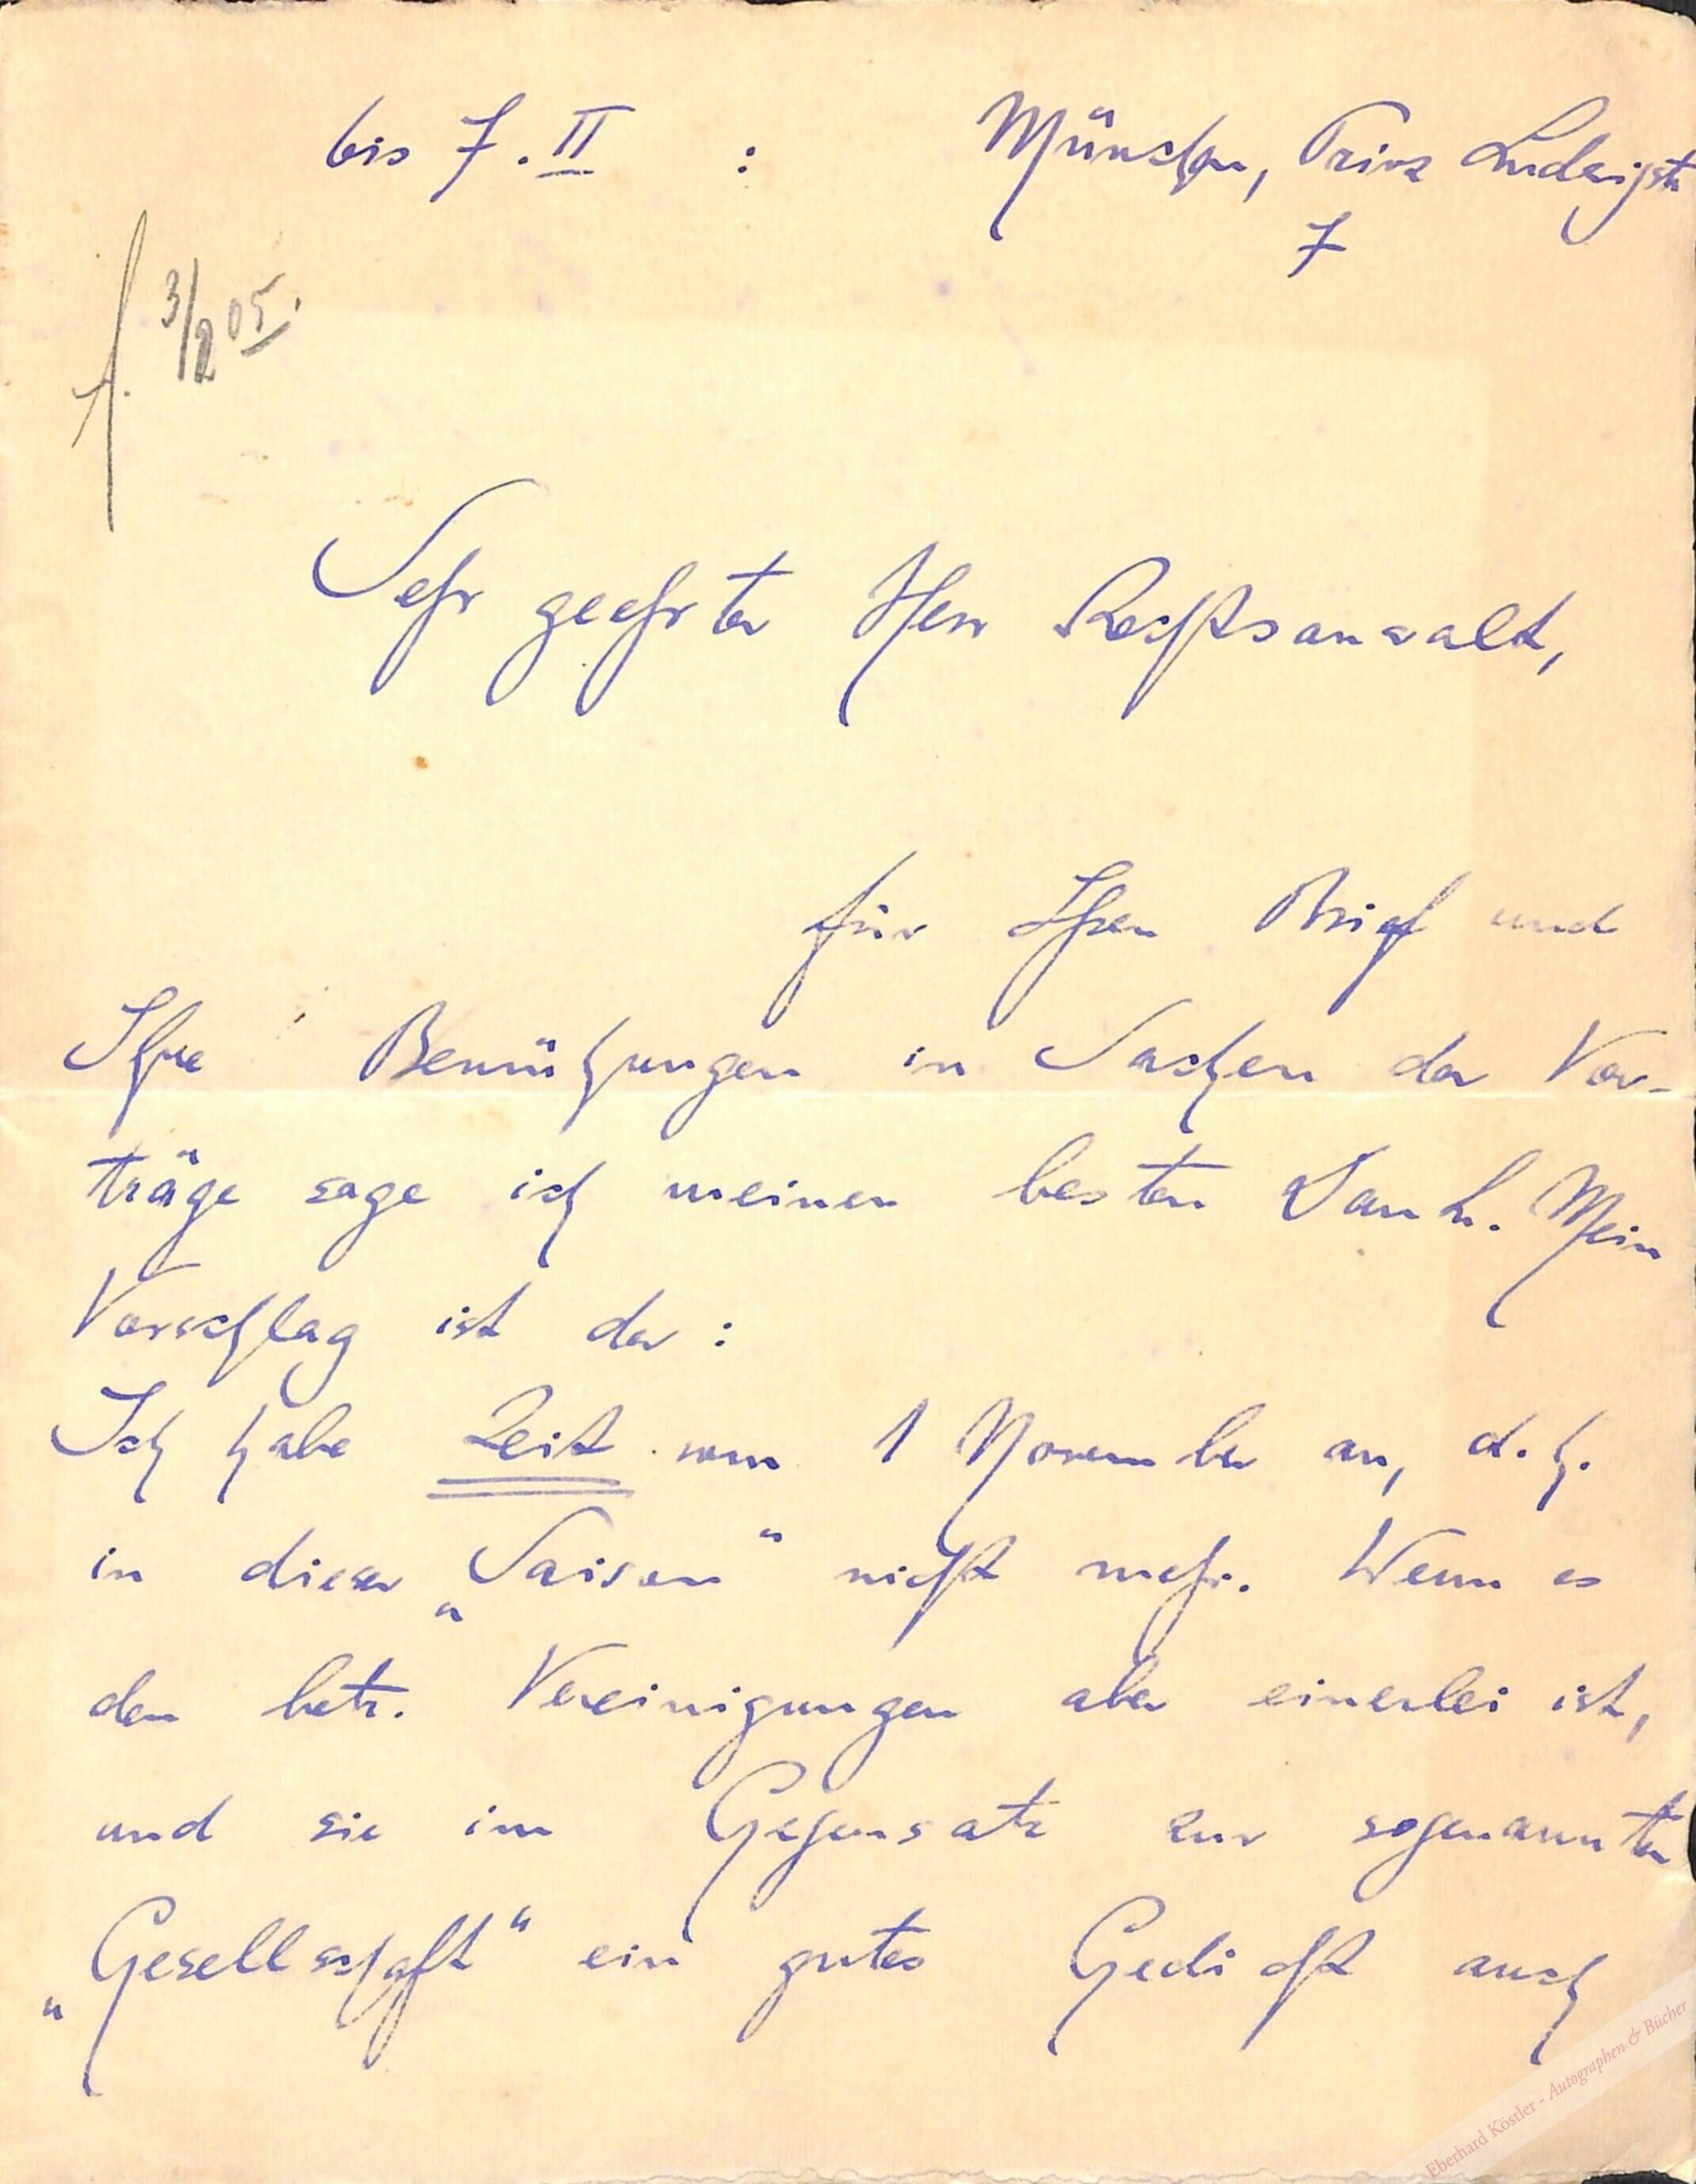 bis 7. II : München, Prinz Ludwigstr
7
3/2 05.
Sehr geehrter Herr Rechtsanwalt,
für Ihren Brief und
Ihre Bemühungen in Sachen der Vor-
träge sage ich meinen besten Dank. Mein
Vorschlag ist der:
Ich habe Zeit vom 1 November an, d. h.
in dieser „Saison“ nicht mehr. Wenn es
den betr. Vereinigungen aber einerlei ist,
und sie im Gegensatz zur sogenannten
„Gesellschaft“ ein gutes Gedicht auch
Eberhard Köstler - Autographen & Bücher